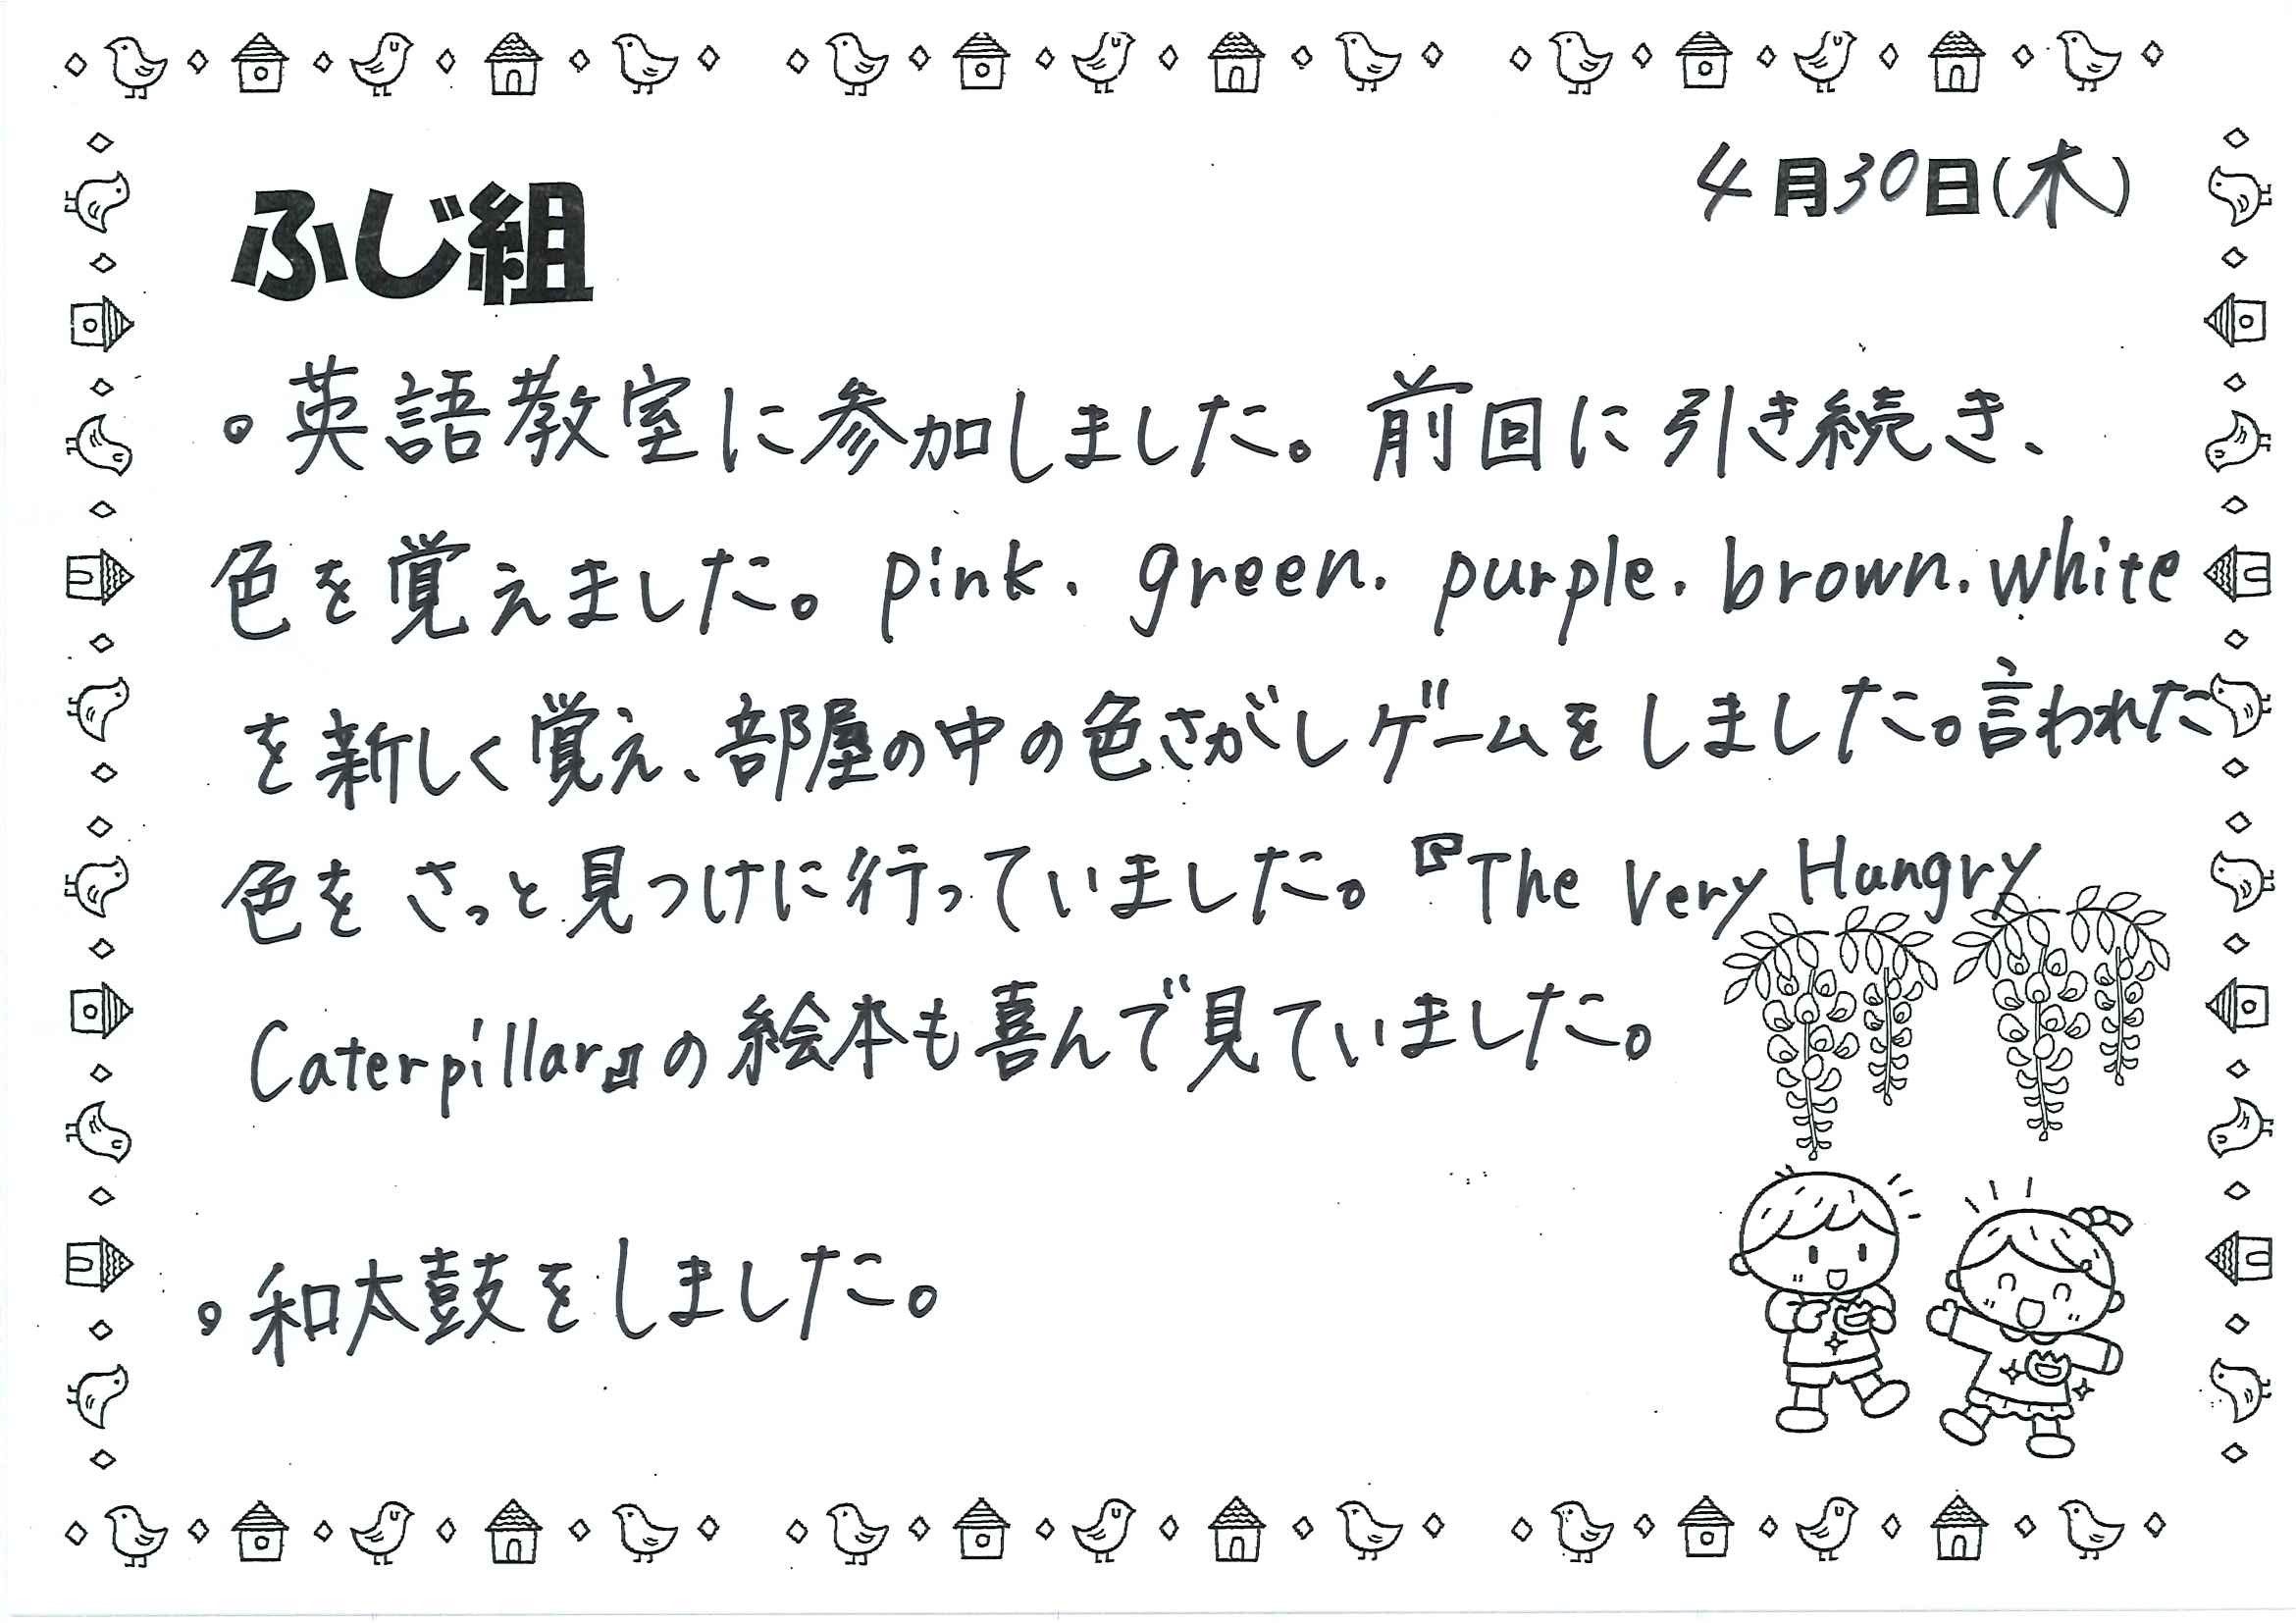 4月30日(木)
ふじ組
。英語教室に参加しました。前回に引き続き、
色を覚えました。pink. green. purple. brown. white
を新しく覚え、部屋の中の色さがしゲームをしました。言われた
色をさっと見つけに行っていました。『The Very Hungry
Caterpillar』の絵本も喜んで見ていました。
。和太鼓をしました。